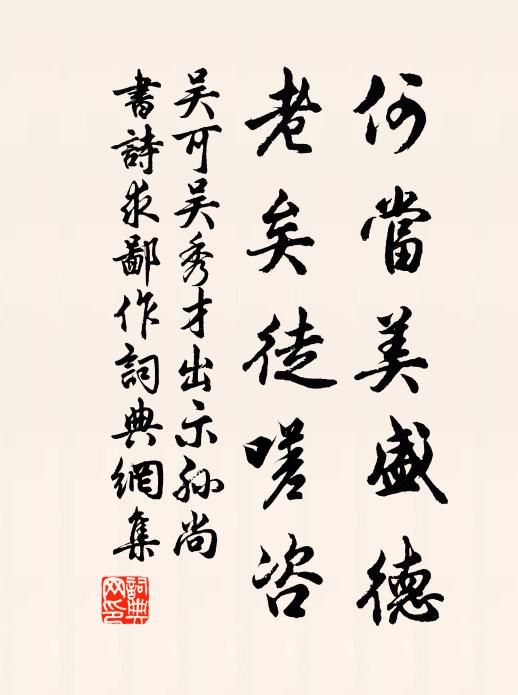 何當美盛德
老矣徒嗟咨
吳可吳秀才出示孫尚
書詩求鄙作詞典網集
詞典網印